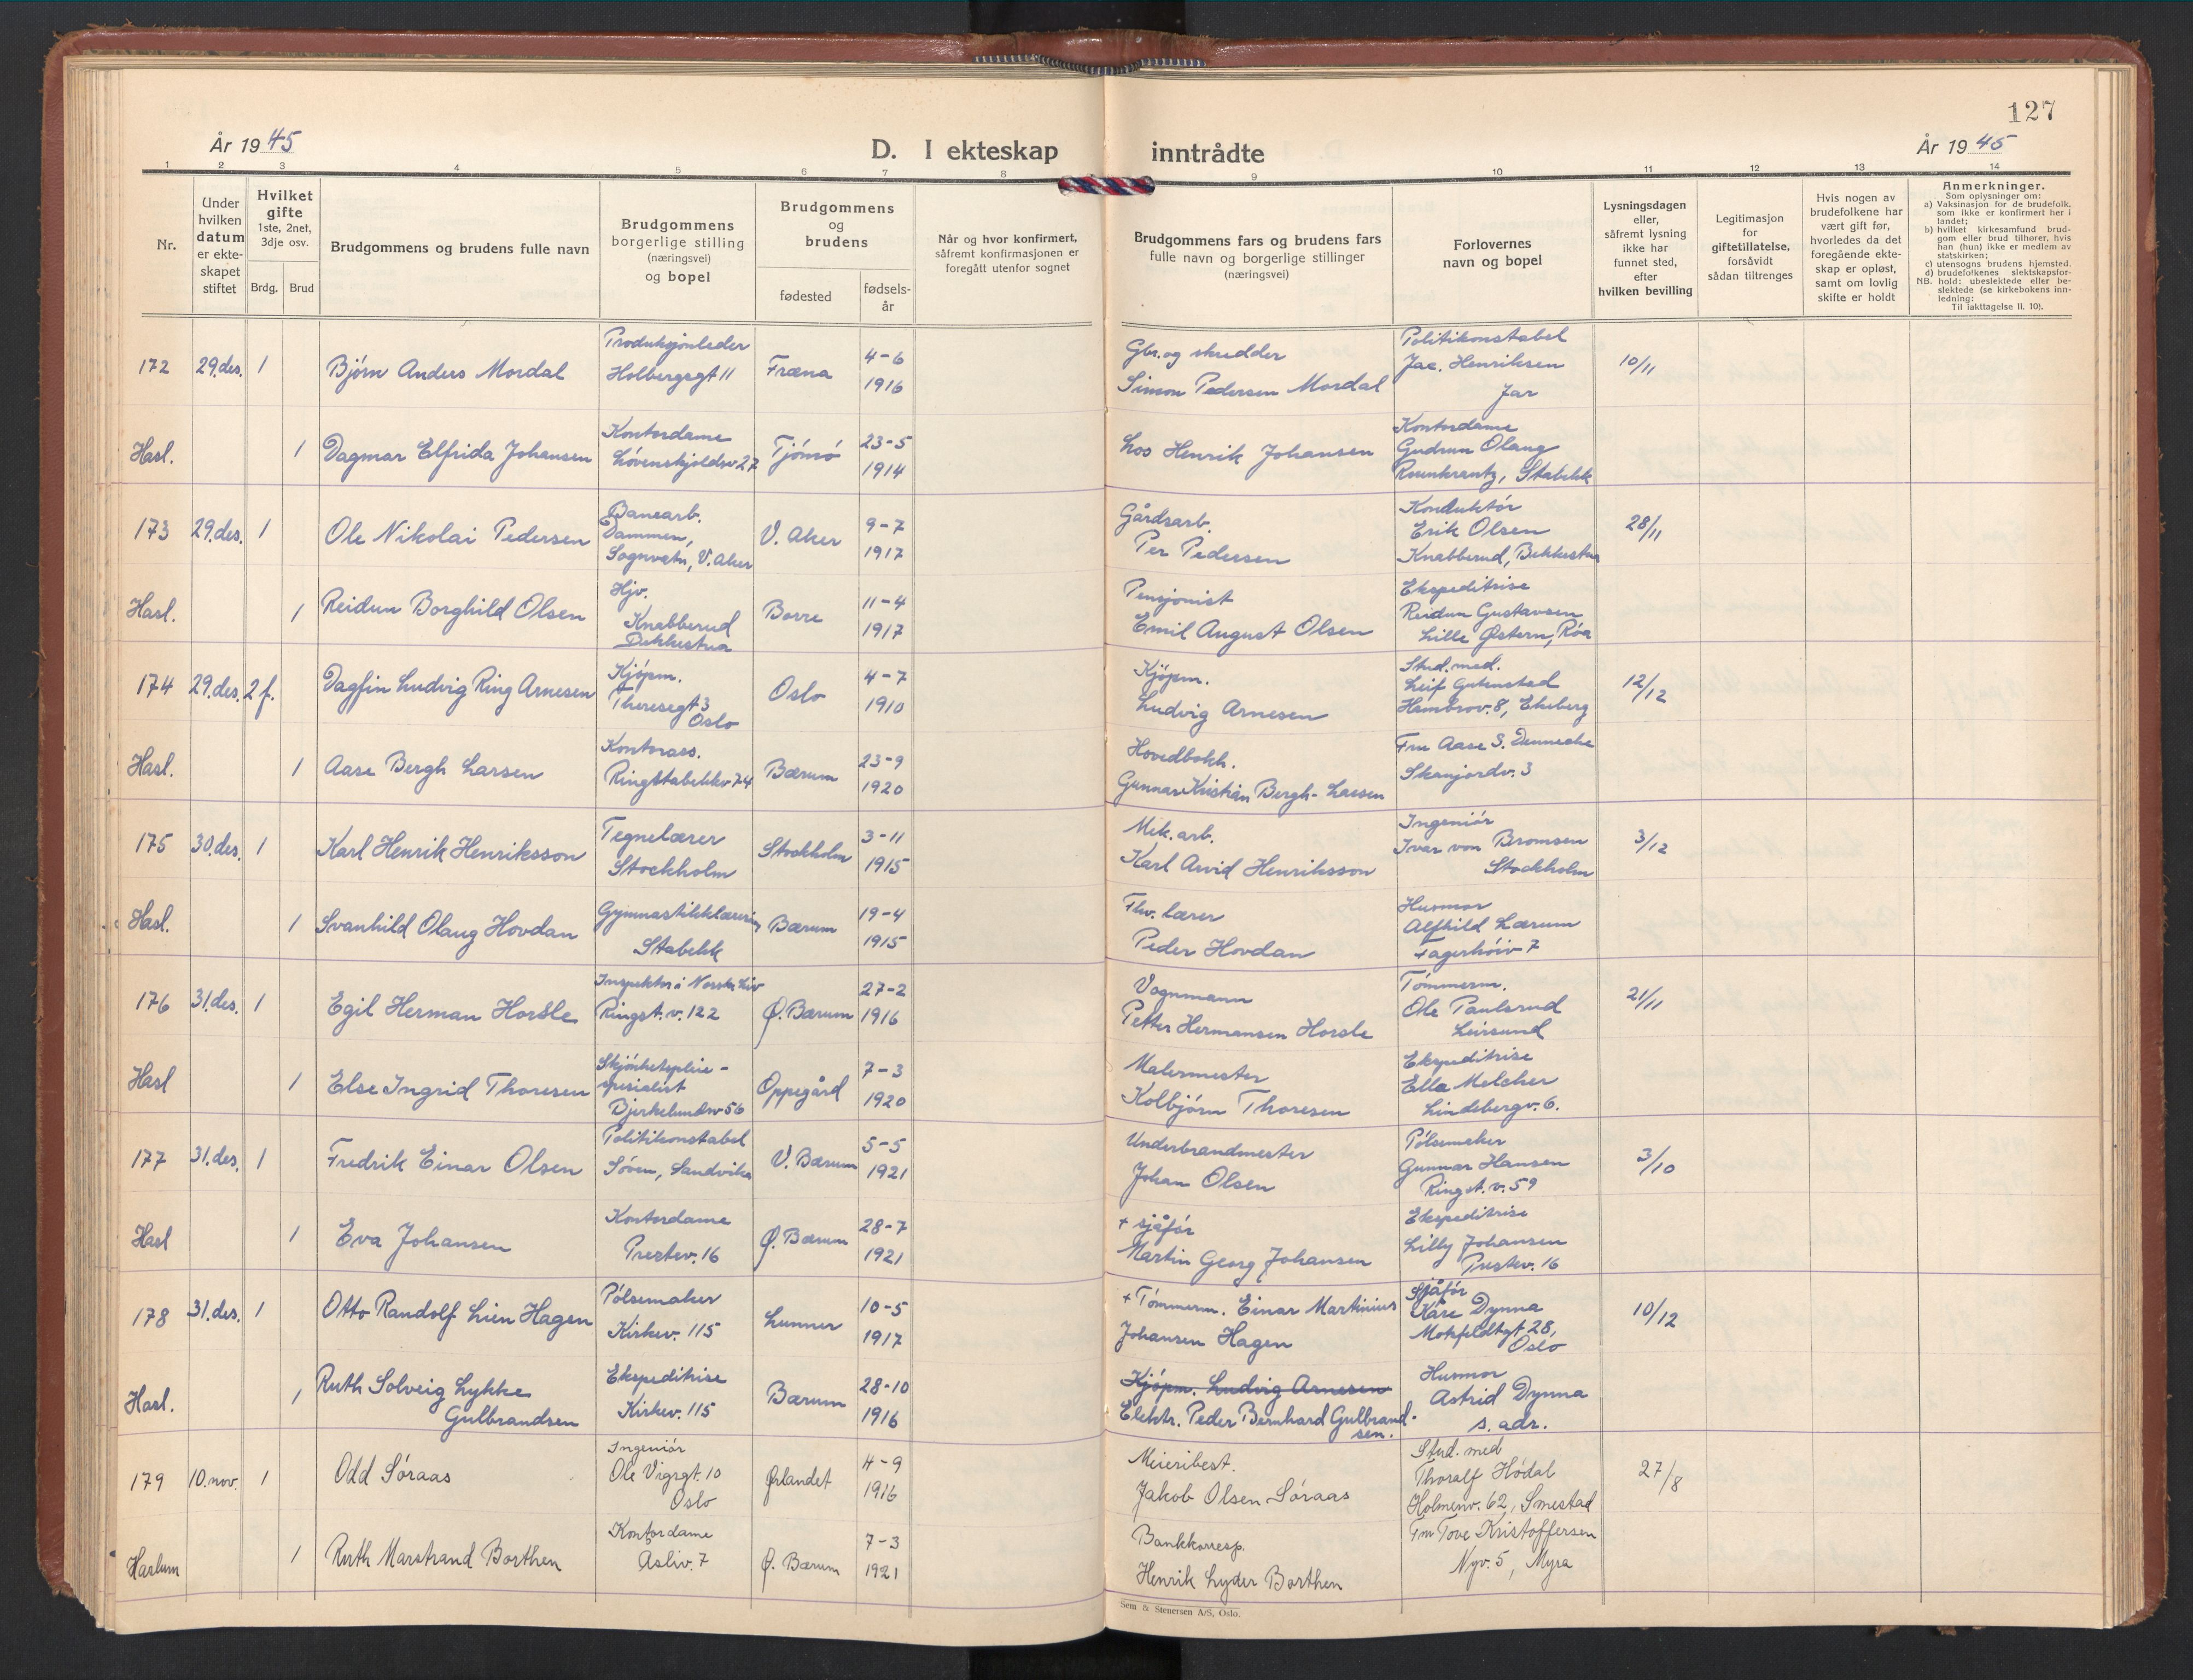 127
År 1945
D. I ekteskap inntrådte
År 1945
1 2 3 4 5 6 7 8 9 10 11 12 13 14
Nr.
Under
hvilken
datum
er ekte-
skapet
stiftet
Hvilket
gifte
1ste, 2net,
3dje osv.
Brdg. Brud
Brudgommens og brudens fulle navn
Brudgommens
borgerlige stilling
(næringsvei)
og bopel
Brudgommens
og
brudens
fødested
fødsels-
år
Når og hvor konfirmert,
såfremt konfirmasjonen er
foregått utenfor sognet
Brudgommens fars og brudens fars
fulle navn og borgerlige stillinger
(næringsvei)
Forlovernes
navn og bopel
Lysningsdagen
eller,
såfremt lysning
ikke har
funnet sted,
efter
hvilken bevilling
Legitimasjon
for
giftetillatelse,
forsåvidt
sådan tiltrenges
Hvis nogen av
brudefolkene har
vært gift før,
hvorledes da det
foregående ekte-
skap er opløst,
samt om lovlig
skifte er holdt
Anmerkninger.
Som oplysninger om:
a) Vaksinasjon for de brudefolk,
som ikke er konfirmert her i
landet;
b) hvilket kirkesamfund brud-
gom eller brud tilhører, hvis
han (hun) ikke er medlem av
statskirken;
c) utensogns brudens hjemsted.
d) brudefolkenes slektskapsfor-
NB. hold: ubeslektede eller be-
slektede (se kirkebokens inn-
ledning:
Til iakttagelse II. 10).
172 29.des. 1 Bjørn Anders Mordal
Produksjonleder
Holbergsgt 11
Fræna
4-6
1916
Gbr. og skredder
Simon Pedersen Mordal
Politikonstabel
Jac. Henriksen
Jar
10/11
Hasl. 1 Dagmar Elfrida Johansen
Kontordame
Løvenskjoldsv 27
Tjømø
23-5
1914
Los Henrik Johansen
Kontordame
Gudrun Olaug
Rosenkrantz, Stabekk
173 29.des. 1 Ole Nikolai Pedersen
Banearb.
Dammen,
Sognvatn, V. Aker
V. Aker
9-7
1917
Gårdsarb.
Per Pedersen
Konduktør
Erik Olsen
Knabberud, Bekkestua
28/11
Hasl. 1 Reidun Borghild Olsen
Hjv.
Knabberud
Bekkestua
Borre
11-4
1917
Pensjonist
Emil August Olsen
Ekspeditrise
Reidun Gustavsen
Lille Østern, Røa
174 29.des. 2 f. Dagfin Ludvig Ring Arnesen
Kjøpm.
Theresegt 3
Oslo
Oslo
4-7
1910
Kjøpm.
Ludvig Arnesen
Stud. med.
Leif Gutenstad
Hambrov. 8, Ekeberg
12/12
Hasl. 1 Aase Bergh Larsen
Kontorass.
Ringstabekkv 74
Bærum
23-9
1920
Hovedbokh.
Gunnar Kristian Bergh-Larsen
Fru Aase S. Denneche
Skanjordv. 3
175 30.des. 1 Karl Henrik Henriksson
Tegnelærer
Stockholm
Stockholm
3-11
1915
Mek. arb.
Karl Arvid Henriksson
Ingeniør
Ivar von Bromsen
Stockholm
3/12
Hasl. 1 Svanhild Olaug Hovdan
Gymnastikklærerin
Stabekk
Bærum
19-4
1915
Fhv. lærer
Peder Hovdan
Husmor
Alfhild Lærum
Fagerhøiv 7
176 31.des. 1 Egil Herman Horsle
Inspektør i Norske Liv
Ringst. v. 122
Ø. Bærum
27-2
1916
Vognmann
Petter Hermansen Horsle
Tømmerm.
Ole Paulsrud
Leirsund
21/11
Hasl 1 Else Ingrid Thoresen
Skjønhetspleie-
spesialist
Bjerkelundsv 56
Oppegård
7-3
1920
Malermester
Kolbjørn Thoresen
Ekspeditrise
Ella Melcher
Lindebergv. 6.
177 31.des. 1 Fredrik Einar Olsen
Politikonstabel
Søven, Sandvika
V. Bærum
5-5
1921
Underbrandmester
Johan Olsen
Pølsemaker
Gunnar Hansen
Ringst. v. 59
3/10
Hasl 1 Eva Johansen
Kontordame
Prestev. 16
Ø. Bærum
28-7
1921
+ sjåfør
Martin Georg Johansen
Ekspeditrise
Lilly Johansen
Prestev. 16
178 31.des. 1 Otto Randolf Lien Hagen
Pølsemaker
Kirkev. 115
Lunner
10-5
1917
+ Tømmerm. Einar Martinius
Johansen Hagen
Sjåfør
Kåre Dynna
Motzfeldtgt 28,
Oslo
10/12
Hasl. 1 Ruth Solveig Lykke
Gulbrandsen
Ekspeditrise
Kirkev. 115
Bærum
28-10
1916
Kjøpm. Ludvig Arnesen
Elektr. Peder Bernhard Gulbrand-
sen.
Husmor
Astrid Dynna
s. adr.
179 10.nov. 1 Odd Søraas
Ingeniør
Ole Vigsgt. 10
Oslo
Ørlandet
4-9
1916
Meieribest.
Jakob Olsen Søraas
Stud. med
Thoralf Hødal
Holmenv. 62, Smestad
27/8
Haslum 1 Ruth Marstrand Borthen
Kontordame
Åsliv. 7
Ø. Bærum
7-3
1921
Bankkorresp.
Henrik Lyder Borthen
Fru Tove Kristoffersen
Nyv. 5, Myra
Sem & Stenersen A/S, Oslo.